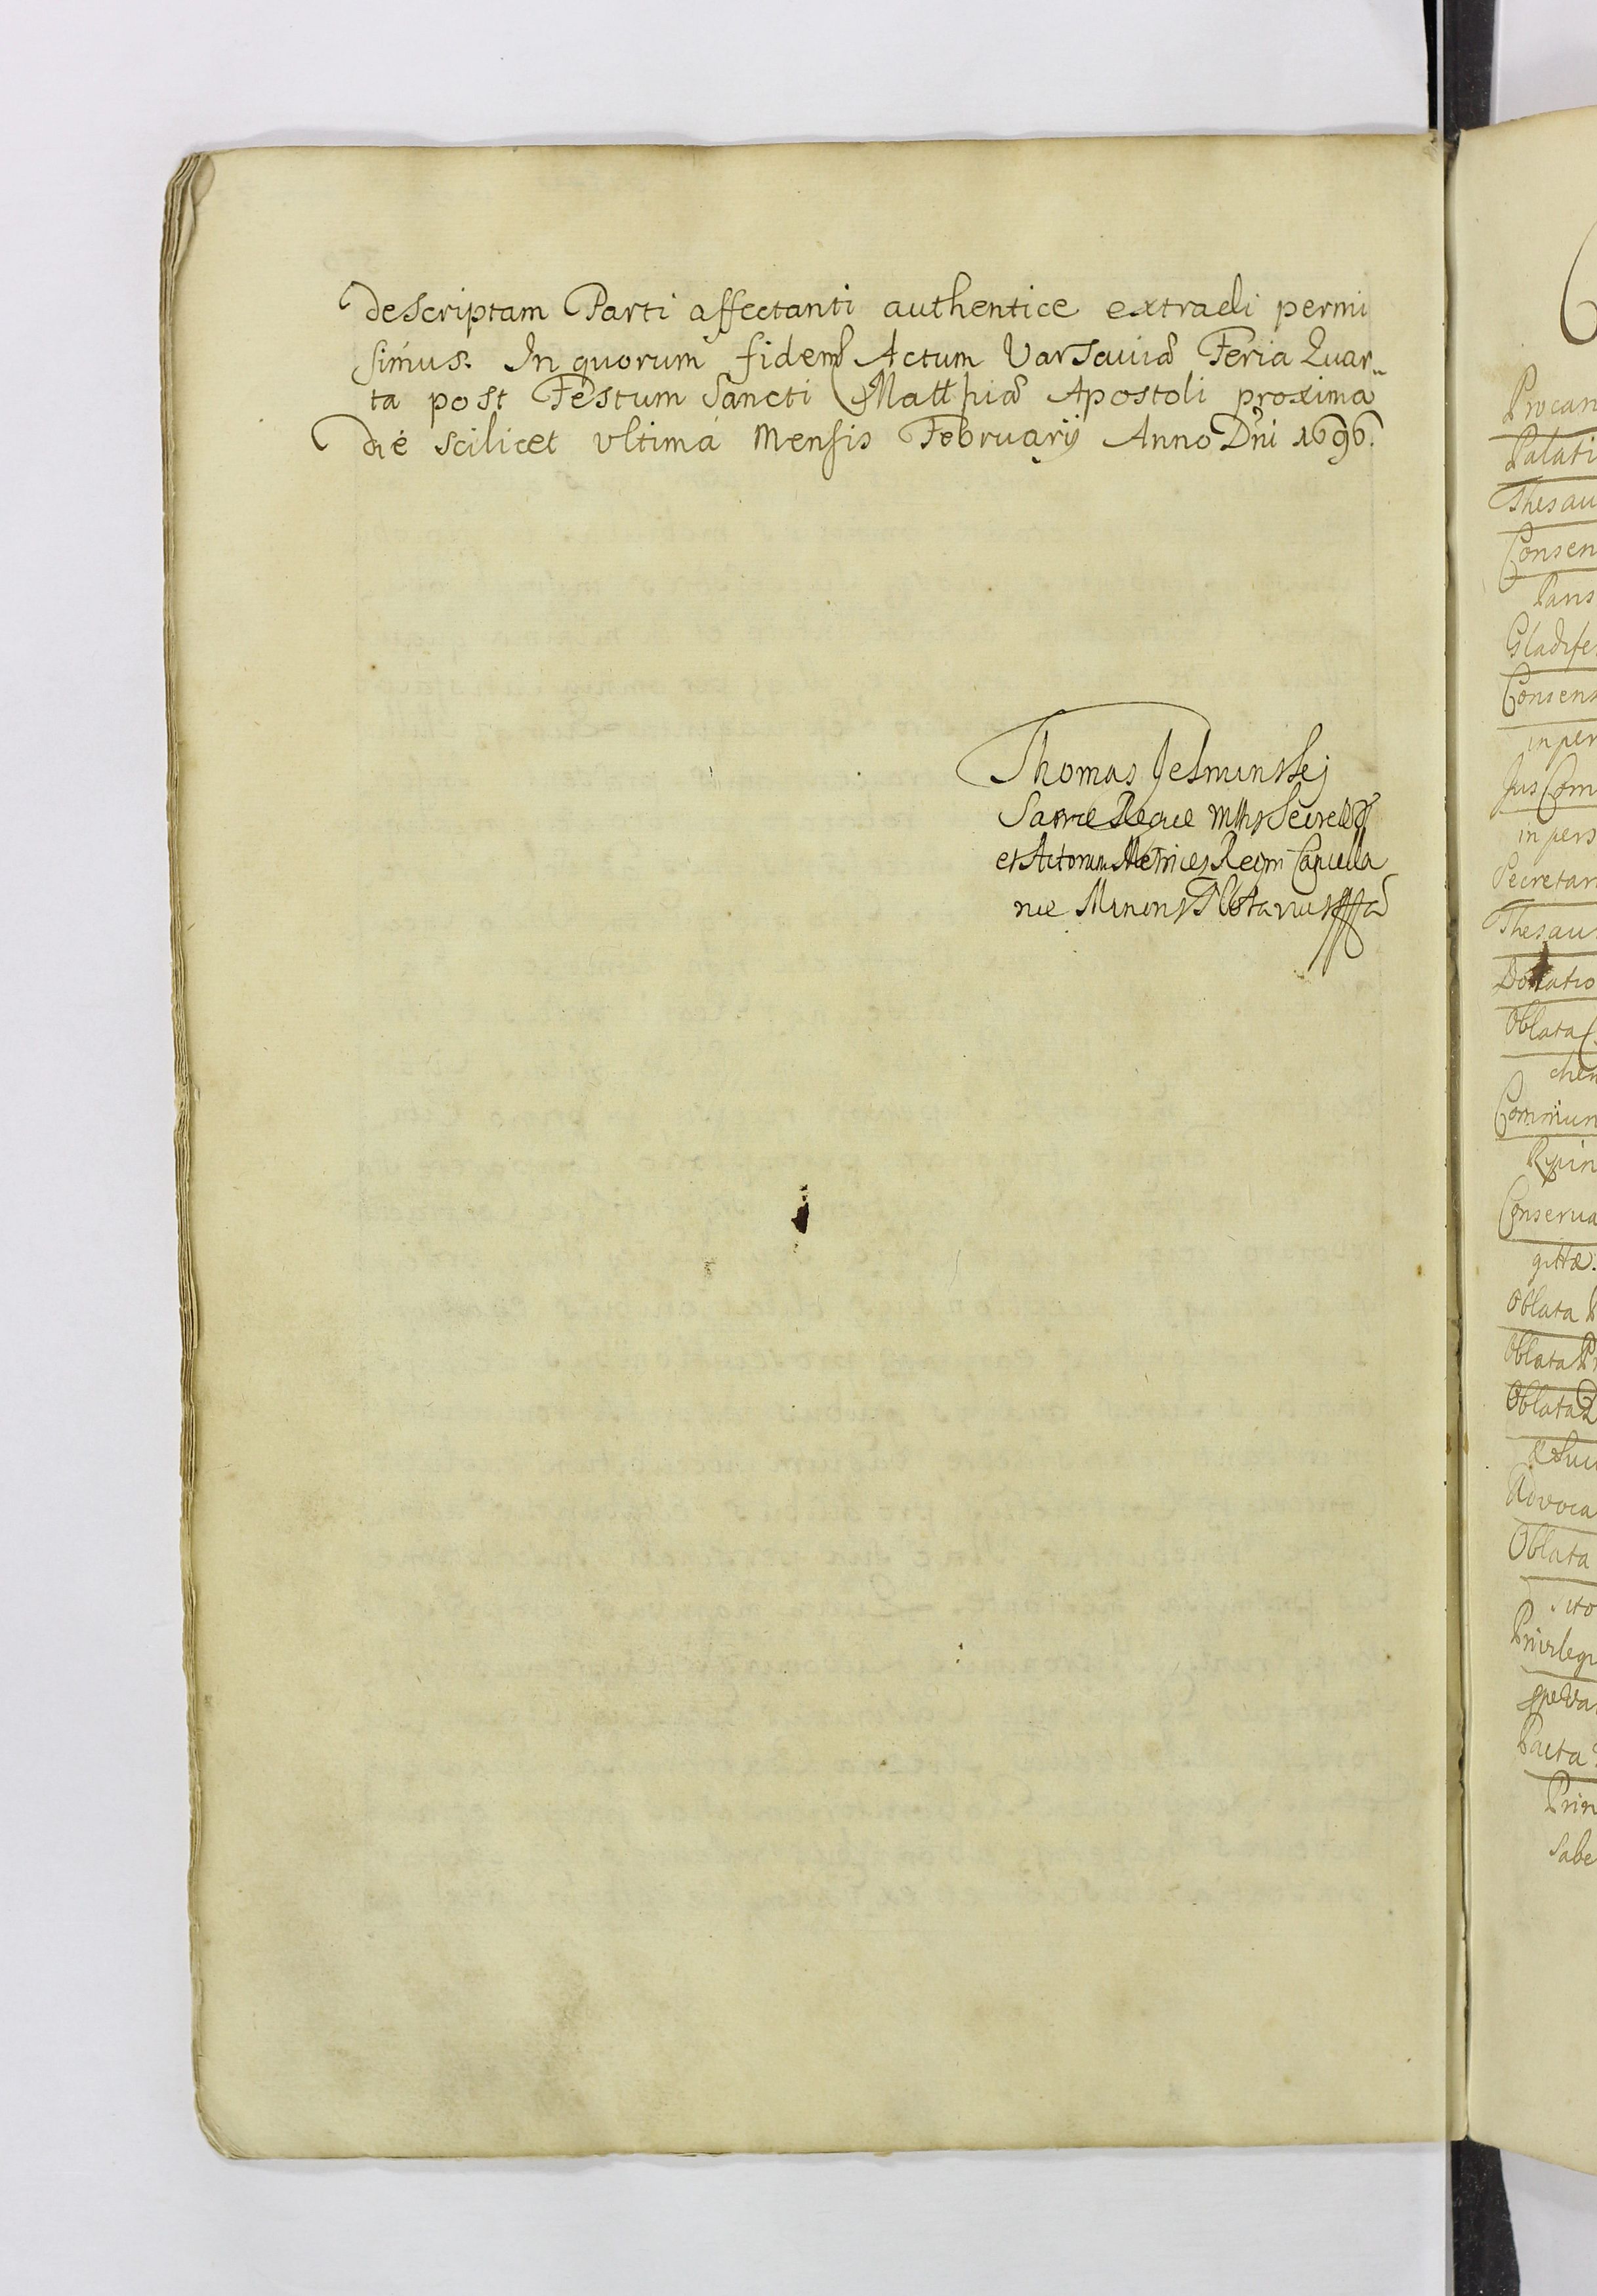 descriptam Parti affectanti authentice extradi permi
simus. In quorum fidem Actum Varsauiæ Feria Quar„
ta post Festum Sancti Matthiæ Apostoli proxima
die scilicet vltimá Mensis Februarij Anno Dni 1696.
Thomas
Sacræ Regiæ Mttis
et Actorum Metrices Regni Cancella
riæ Minoris Notarius
Procan
Palati
Thesau
Consen
Pans
Gladife
Consens
in per
Jus Com
in pers
Secretar
Thesau
Donatio
Oblata
chen
Commun
Conserua
gittæ.
Oblata
Oblata Pr
Oblata
Advoca
Oblata
Privilegi
Pacta
Prin
Sabe